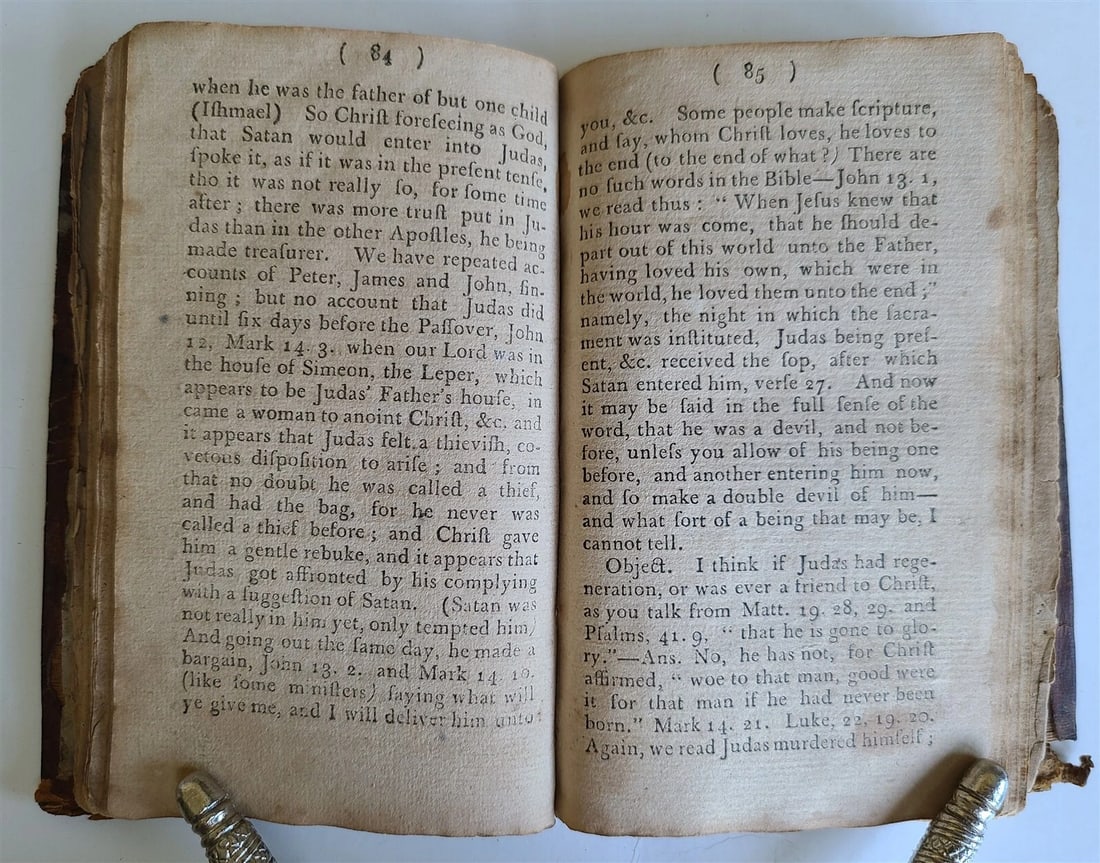 ( 84 )
when he was the father of but one child
(Iſhmael) So Chriſt foreſeeing as God,
that Satan would enter into Judas,
ſpoke it, as if it was in the preſent tenſe,
tho it was not really ſo, for ſome time
after ; there was more truſt put in Ju-
das than in the other Apoſtles, he being
made treaſurer. We have repeated ac-
counts of Peter, James and John, ſin-
ning ; but no account that Judas did
until ſix days before the Paſſover, John
12, Mark 14. 3. when our Lord was in
the houſe of Simeon, the Leper, which
appears to be Judas' Father's houſe, in
came a woman to anoint Chriſt, &c. and
it appears that Judas felt a thieviſh, co-
vetous diſpoſition to ariſe ; and from
that no doubt he was called a thief,
and had the bag, for he never was
called a thief before ; and Chriſt gave
him a gentle rebuke, and it appears that
Judas got affronted by his complying
with a ſuggeſtion of Satan. (Satan was
not really in him yet, only tempted him)
And going out the ſame day, he made a
bargain, John 13. 2. and Mark 14. 10.
(like ſome miniſters) ſaying what will
ye give me, and I will deliver him unto
( 85 )
you, &c. Some people make ſcripture,
and ſay, whom Chriſt loves, he loves to
the end (to the end of what ?) There are
no ſuch words in the Bible—John 13. 1,
we read thus : “ When Jeſus knew that
his hour was come, that he ſhould de-
part out of this world unto the Father,
having loved his own, which were in
the world, he loved them unto the end ;”
namely, the night in which the ſacra-
ment was inſtituted, Judas being preſ-
ent, &c. received the ſop, after which
Satan entered him, verſe 27. And now
it may be ſaid in the full ſenſe of the
word, that he was a devil, and not be-
fore, unleſs you allow of his being one
before, and another entering him now,
and ſo make a double devil of him—
and what ſort of a being that may be, I
cannot tell.
Object. I think if Judas had rege-
neration, or was ever a friend to Chriſt,
as you talk from Matt. 19. 28, 29. and
Pſalms, 41. 9, “ that he is gone to glo-
ry.”—Ans. No, he has not, for Chriſt
affirmed, “ woe to that man, good were
it for that man if he had never been
born.” Mark 14. 21. Luke, 22, 19. 20.
Again, we read Judas murdered himſelf ;